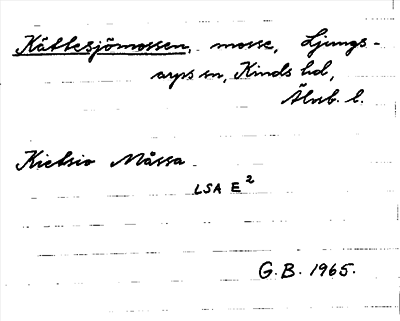 Kättesjömossen, mosse, Ljungs-
arps sn, Kinds hd,
Älvsb. l.
Kietsio Måssa
LSA E2
G.B. 1965.